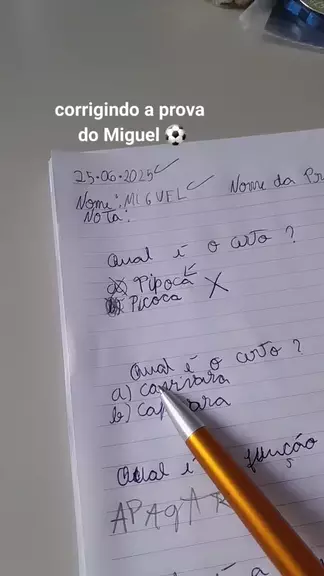 corrigindo a prova
do Miguel ⚽
25.06.2025
Nome: MIGUEL Nome da Pr
NOTA:
Qual é o certo?
a) Tipoca
Picoca
Qual é o certo?
a) caprivara
b)
Qual é função
APAGAR